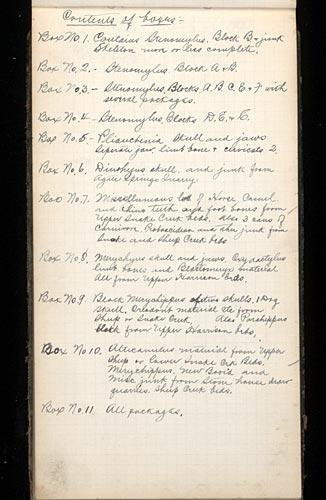 Contents of boxes:-
Box No. 1. Contains Stenomylus, Block B & junk
Skeleton more or less complete.
Box No. 2. - Stenomylus Block A & G.
Box No. 3 - Stenomylus, Blocks A. B. C. E. & F with
several packages.
Box No. 4 - Stenomylus, Blocks D. E. &
Box No. 5 - Pliauchenia skull and jaws
Seperate jaw, limb bone & cervicals 2.
Box No. 6. Dinohyus skull, and junk from
Agate Springs Quarry.
Box No. 7. Miscellaneous lot of Horse Camel
and rhino teeth and foot bones from
Upper Snake Creek beds, also 3 cans of
Carnivora, Proboscidean and other junk from
Snake and Sheep Creek beds
Box No. 8. Merychyus skull and jaws, Oxydactylus
limb bones, and Blastomeryx material
All from Upper Harrison beds.
Box No. 9. Block Merychippus two skulls, 1 Dog
skull, Oreodont material etc from
Sheep or Snake Creek. Also, Parahippus
block from Upper Harrison beds.
Box No. 10. Alticamelus material from Upper
Sheep or Lower Snake Crk Beds,
Merychippus, New Bovid and
Misc junk from Stone house draw
quarries. Sheep Creek beds.
Box No. 11. All packages.